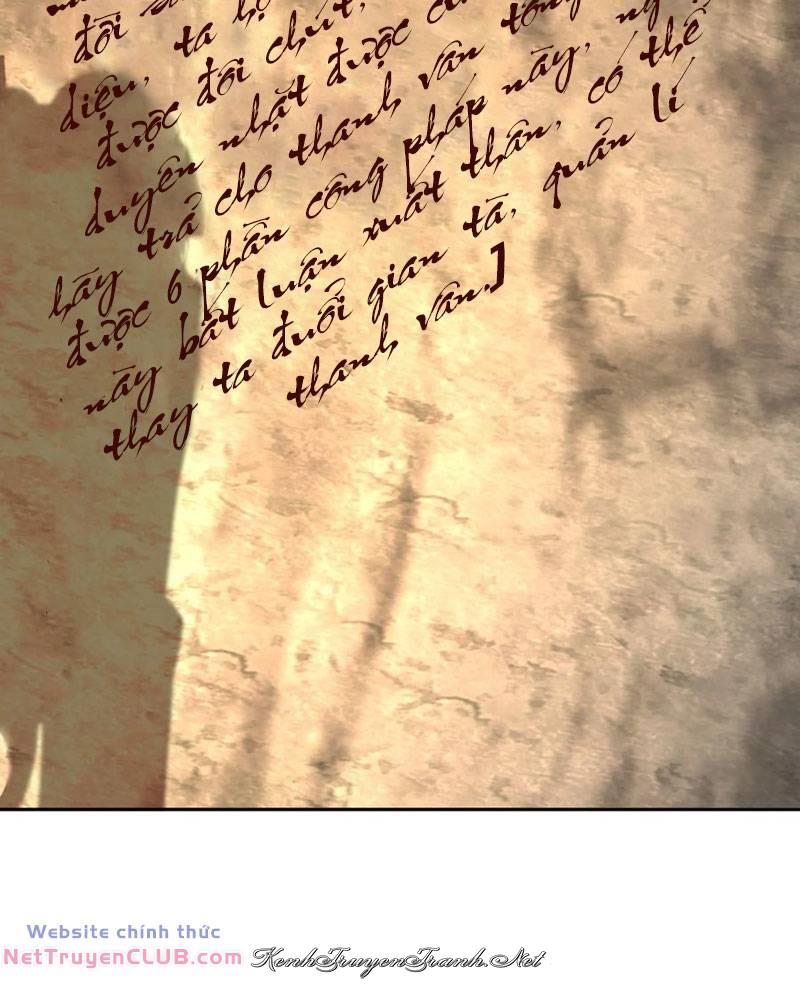 đời
diệu, ta
được đôi chút,
duyên nhặt được
hãy trả cho thanh vân tông
được 6 phần công pháp này,
này bất luận xuất thân, có thể
thay ta đuổi gian tà, quản lí
thanh vân.]
Website chính thức
NetTruyenCLUB.com
KenhTruyenTranh.Net